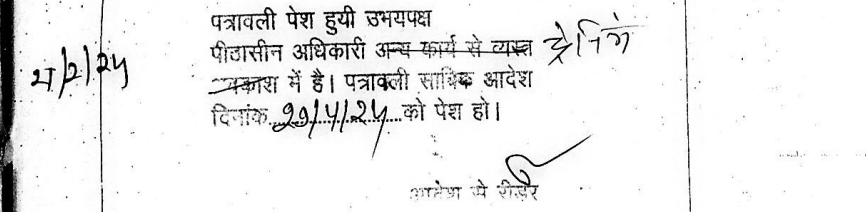 पत्रावली पेश हुयी उभयपक्ष
पीठासीन अधिकारी अन्य कार्य से व्यस्त ट्रेनिंग
अवकाश में है। पत्रावली साबिक आदेश
दिनांक.............को पेश हो।
आदेश से रीडर